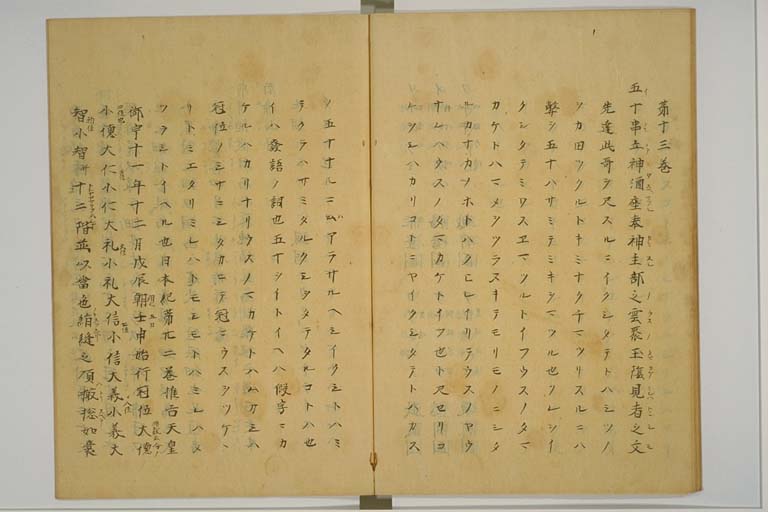 第十三巻
五十串立神酒座奉神主部之雲聚玉蔭見者之文
先達此哥ヲ尺スルニイクシタテトハミツノ
ソカ田ツクルトキミナクチマツリスルニハ
幣ヲ五十ハサミテミキシマツル也ソレシイ
クシタテミワスヱマツルトイフウスノタマ
カケトハマメツラスキテモリモノニシタ
ルカナカノホトハ
ナレハウスノタマカケトイフ也ト尺セリコ
レヲシハカリコトニヤイクシタテトバカス
ソ五十ナルニアラサルヘシイクシトハミ
テクラハサミタルクシヲタテタルコトハ也
イハ發語ノ詞也五十シイトイヘハ假字ニカ
ケルハカリナリウスノマカケトハ
冠位ノミサニミタカニテ冠ニウスヲツケ
リトミエタリミレハトモシモトハミレハメ
ツラシトイヘル也日本紀第廿二巻推古天皇
御宇十一年十二月戊辰朔壬申始行冠位大德
小德大仁小仁大礼小礼大信小信大義小義大
智小智并十二階並以當色絁縫之頂撮捴如嚢